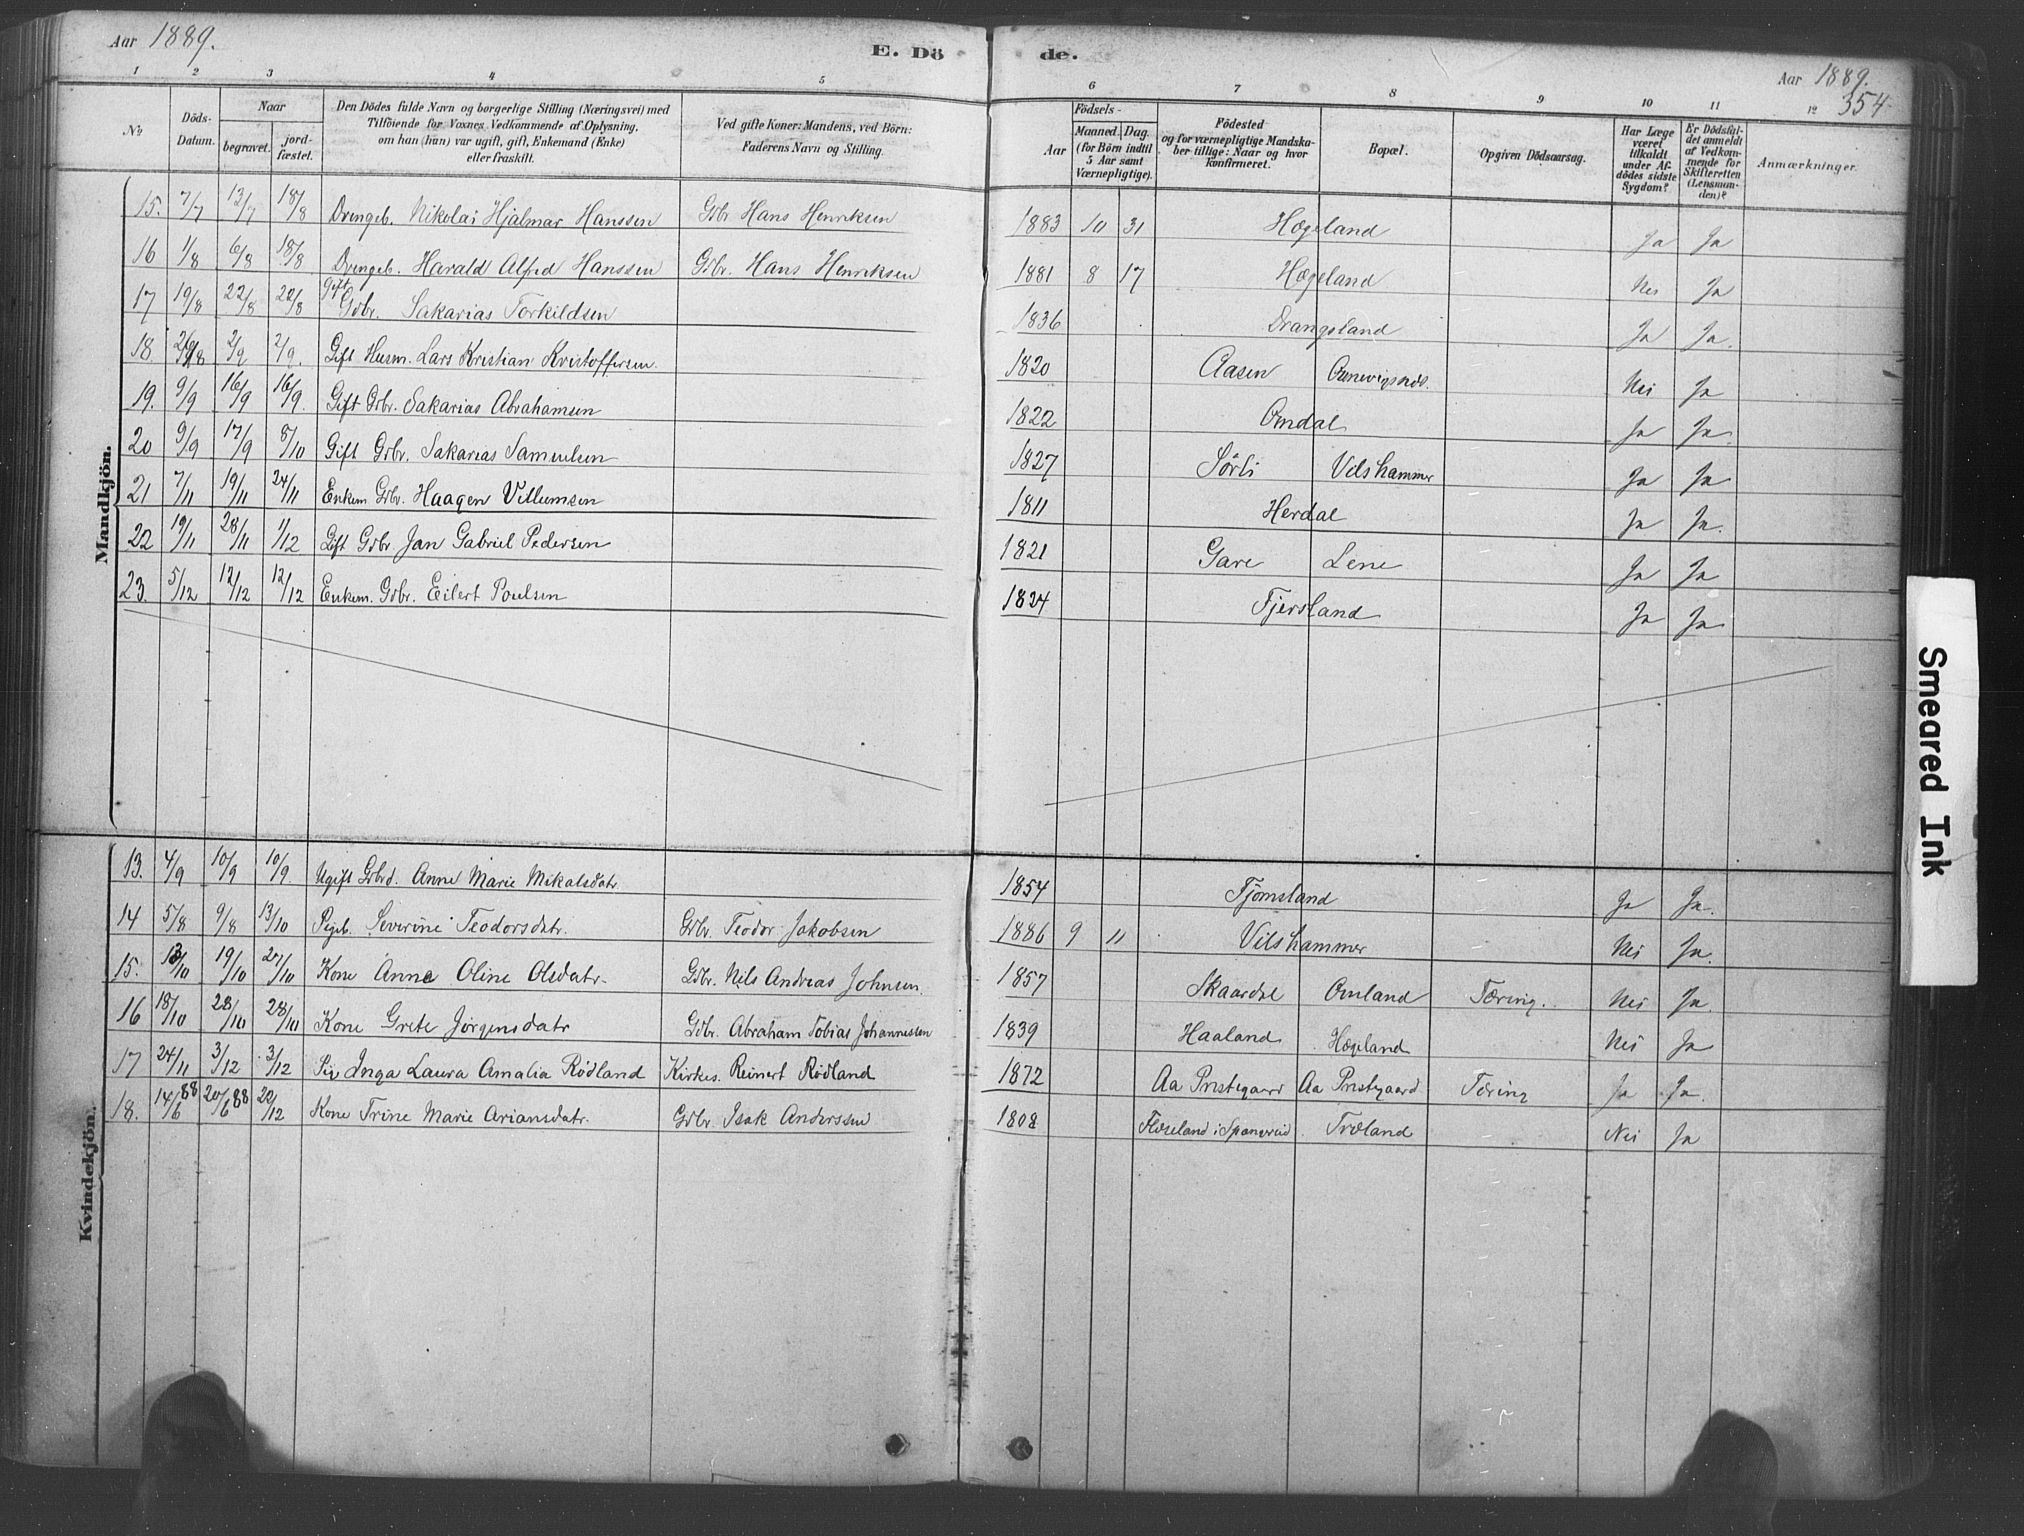 Aar 1889.
E. Dö
de.
Aar 1889.
354
1 2 3 4 5 6 7 8 9 10 11 12
№
Döds-Datum.
Naar
begravet.
jordfæstet.
Den Dödes fulde Navn og borgerlige Stilling (Næringsvei) med
Tilföiende for Voxnes Vedkommende af Oplysning,
om han (hun) var ugift, gift, Enkemand (Enke)
eller fraskilt.
Ved gifte Koner: Mandens, ved Börn:
Faderens Navn og Stilling.
Födsels-
Aar
Maaned. Dag.
(for Börn indtil
5 Aar samt
Værnepligtige).
Födested
og for værnepligtige Mandska-
ber tillige: Naar og hvor
konfirmeret.
Bopæl.
Opgiven Dödsaarsag.
Har Læge
været
tilkaldt
under Af-
dödes sidste
Sygdom?
Er Dödsfal-
det anmeldt
af Vedkom-
mende for
Skifteretten
(Lensman-
den)?
Anmærkninger.
Mandkjön.
15. 7/7 13/7 18/8 Drengeb. Nikolai Hjalmar Hanssen Gdbr Hans Henriksen 1883 10 31 Hægeland Ja Ja
16 1/8 6/8 18/8 Drengeb. Harald Alfred Hanssen Gdbr. Hans Henriksen 1881 8 17 Hægeland Nei Ja
17 19/8 22/8 22/8 Gift Gdbr. Sakarias Torkildsen 1836 Drangsland Ja Ja.
18. 2/9 2/9. Gift Husm. Lars Kristian Kristoffersen. 1820 Aasen Nei Ja
19. 9/9 16/9 16/9. Gift Gdbr. Sakarias Abrahamsen 1822 Omdal Ja Ja.
20 9/9 17/9 8/10 Gift Gdbr. Sakarias Samuelsen 1827 Sørli Vilshammer Ja Ja
21 7/11 19/11 24/11 Enkem. Gdbr. Haagen Villumsen 1811 Herdal Ja Ja.
22 19/11 28/11 1/12 Gift Gdbr Jan Gabriel Pedersen 1821 Gare Lene Ja Ja
23. 5/12 12/12 12/12 Enkem. Gdbr. Eilert Poulsen 1824 Fjersland Ja Ja
Kvindekjön.
13. 4/9 10/9 10/9. Ugift Gdbrd. Anne Marie Mikalsdatr. 1854 Tjomsland Ja Ja.
14 5/8 9/8 13/10 Pigeb. Severine Teodorsdatr. Gdbr. Teodor Jakobsen 1886 9 11 Vilshammer Nei Ja.
15. 13/10 19/10 27/10 Kone Anna Oline Olsdatr. Gdbr. Nils Andreas Johnsen. 1857 Skaardal Omland Tæring. Nei Ja.
16 18/10 28/10 28/10 Kone Grete Jørgensdatr Gdbr. Abraham Tobias Johannessen 1839 Haaland Hægeland Nei Ja
17 24/11 3/12 3/12 Pige Inga Laura Amalia Rødland Kirkes. Reinert Rødland 1872 Aa Prestegaard Aa Prestgaard Tæring Ja Ja.
18. 14/6 88 20/6 88 22/12 Kone Trine Marie Ariansdatr. Gdbr. Isak Anderssen 1808 Floseland i Spangreid. Træland Nei Ja
Smeared Ink